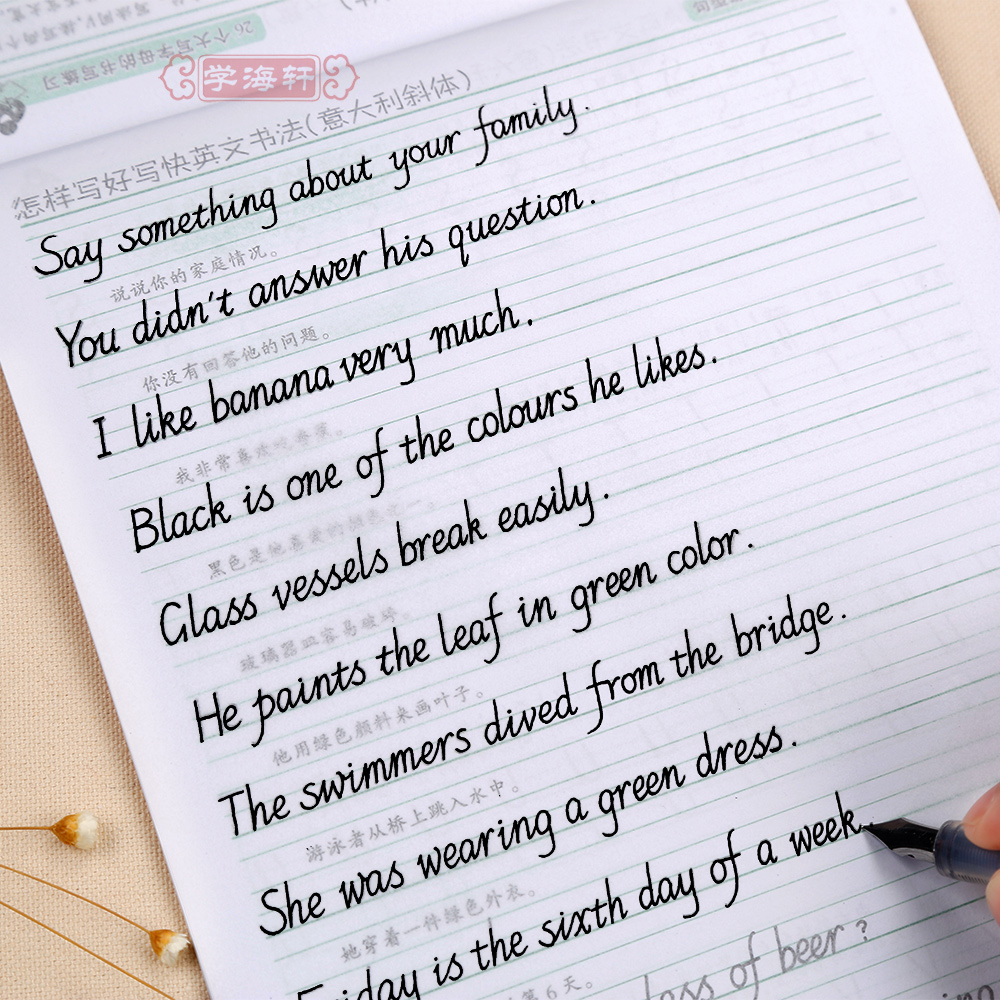 26个大写字母的书写练习
学海轩
怎样写好写快英文书法(意大利斜体)
Say something about your family.
说说你的家庭情况。
You didn't answer his question.
你没有回答他的问题。
I like banana very much.
我非常喜欢吃香蕉。
Black is one of the colours he likes.
黑色是他喜爱的颜色之一。
Glass vessels break easily.
玻璃器皿容易破碎。
He paints the leaf in green color.
他用绿色颜料来画叶子。
The swimmers dived from the bridge.
游泳者从桥上跳入水中。
She was wearing a green dress.
她穿着一件绿色外衣。
Friday is the sixth day of a week.
第6天。
of beer?